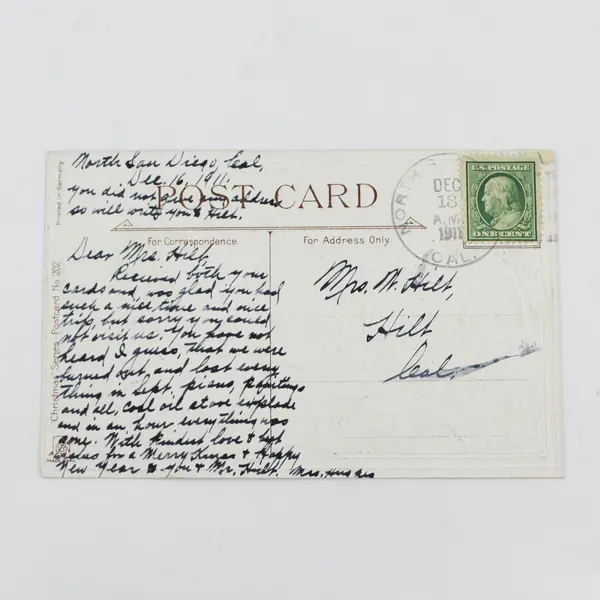 North San Diego, Cal,
Dec. 16, 1911.
you did not give any address
so will write you Hilt.
POST CARD
For Correspondence.
For Address Only.
Dear Mrs. Hilt,
Received both your
cards and was glad you had
such a nice time and nice
trip, but sorry you could
not visit us. You have not
heard I guess, that we were
burned out, and lost every
thing in Sept. piano, paintings
and all, coal oil stove explode
and in an hour everything was
gone. With kindest love & best
wishes for a Merry Xmas & Happy
New Year to you & Mr. Hilt. Mrs. Hughes
Mrs. W. Hilt,
Hilt
Cal.
NORTH
DEC
18
A.M.
1911
CAL.
U.S. POSTAGE
ONE CENT
Printed in Germany
Christmas Series - Postcard No. 202